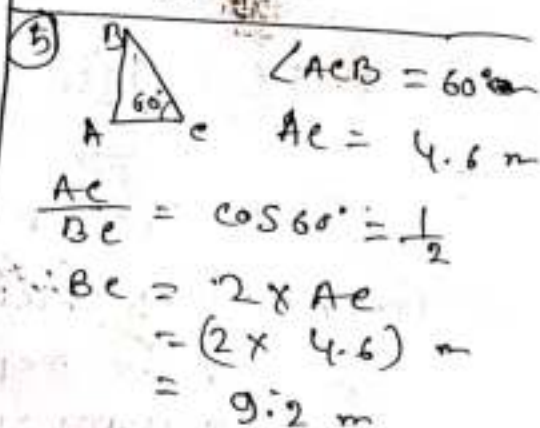 5
B
60°
A C
∠ACB = 60°
AC = 4.6 m
AC/BC = cos 60° = 1/2
∴ BC = 2 × AC
= (2 × 4.6) m
= 9.2 m